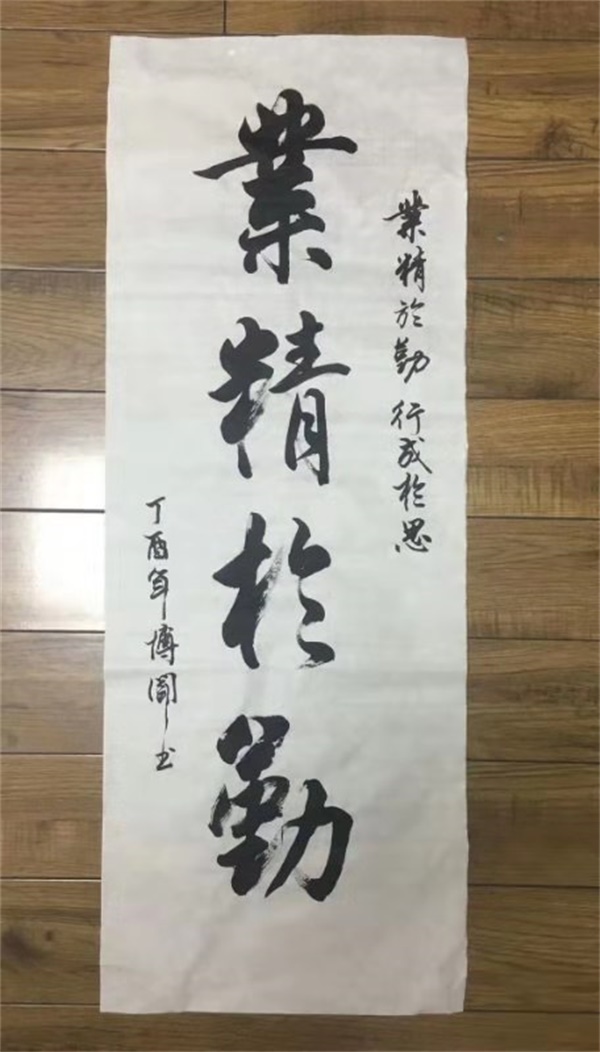 業精於勤 行成於思
業精於勤
丁酉年博圖书